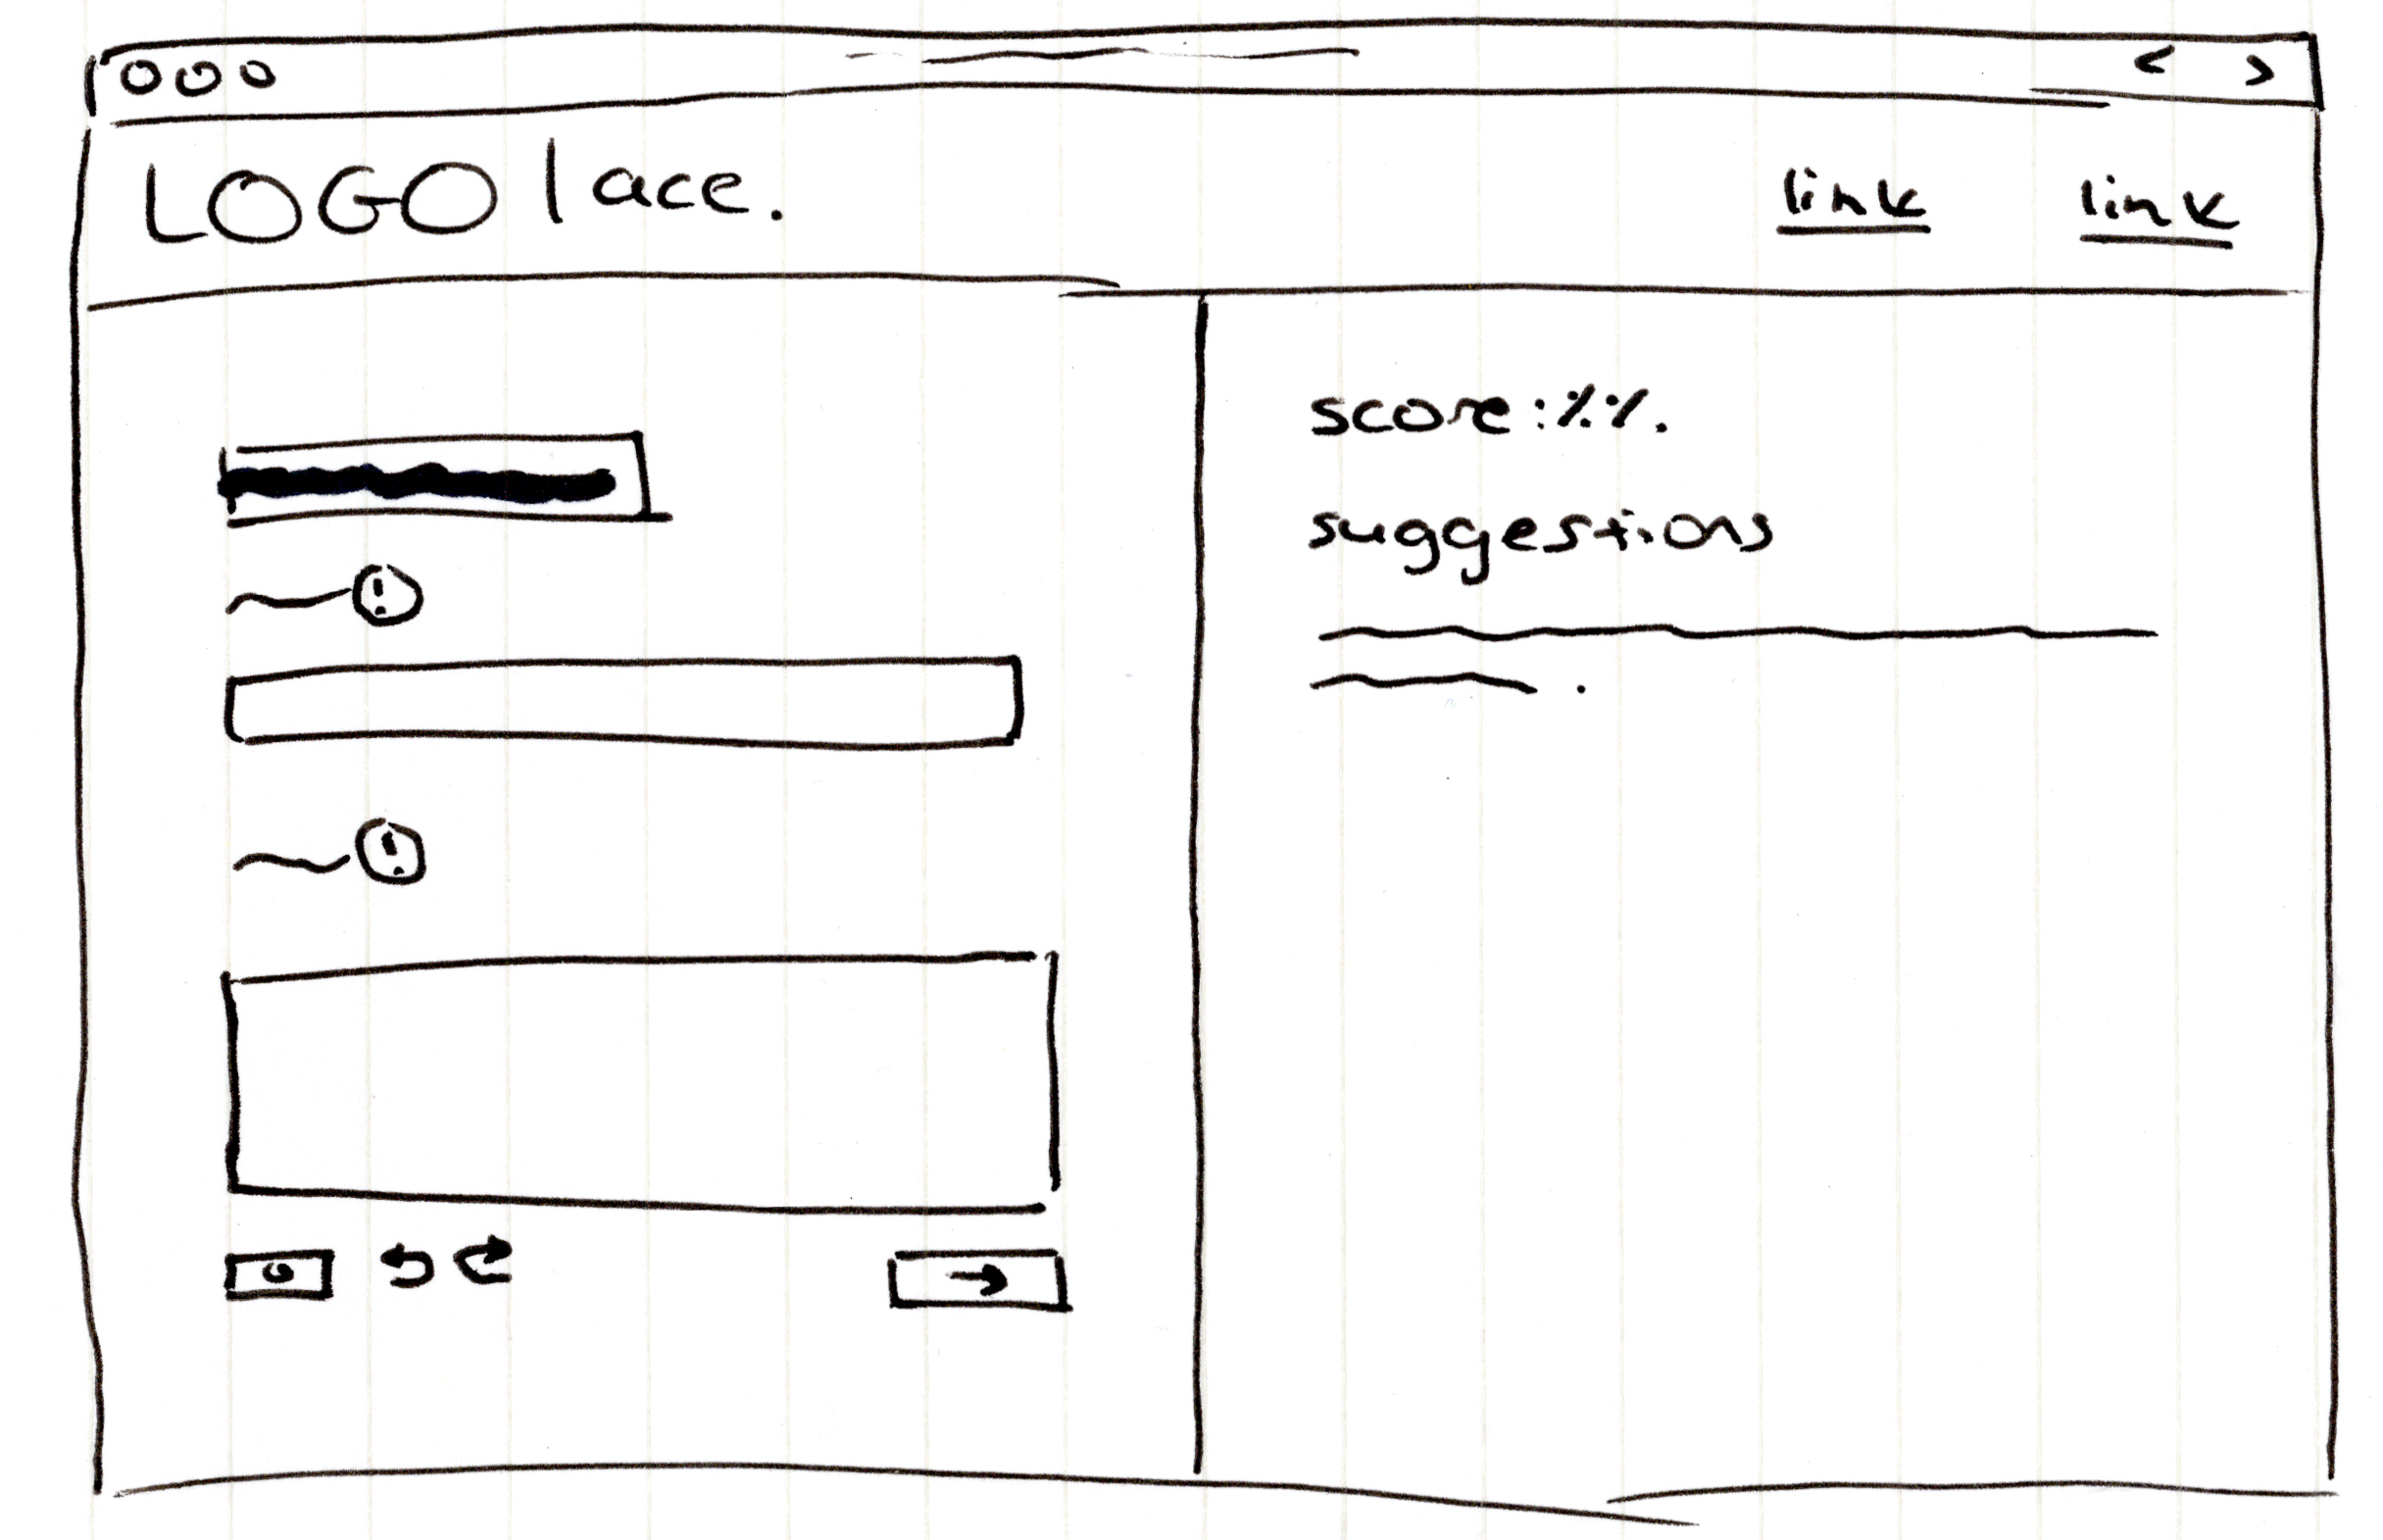 LOGO | ace.
link link
score:%%.
suggestions